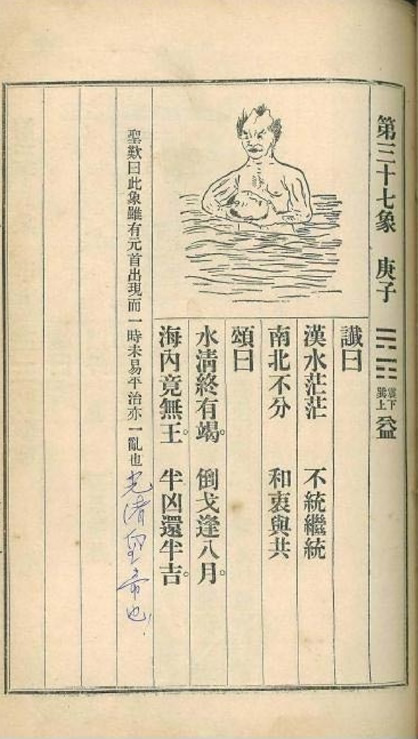 第三十七象 庚子 ䷩ 震下巽上 益
讖曰
漢水茫茫 不統繼統
南北不分 和衷與共
頌曰
水清終有竭。 倒戈逢八月。
海內竟無王 半凶還半吉。
聖歎曰此象雖有元首出現而一時未易平治亦一亂也
光清皇帝也!